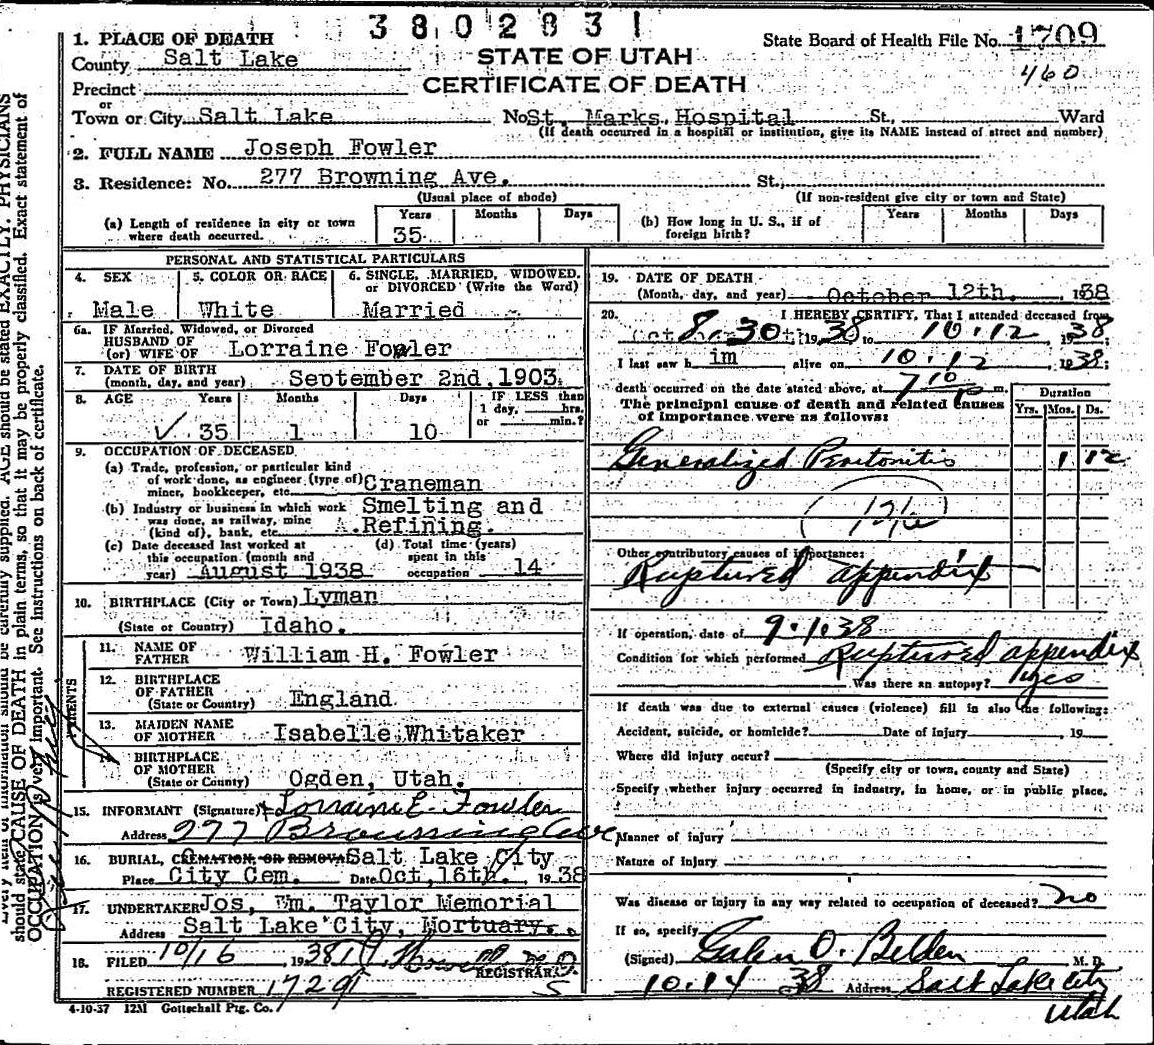 3802831
1. PLACE OF DEATH
STATE OF UTAH
State Board of Health File No. 1709
County Salt Lake
460
Precinct
CERTIFICATE OF DEATH
or
Town or City Salt Lake No. St. Marks Hospital St., Ward
(If death occurred in a hospital or institution, give its NAME instead of street and number)
2. FULL NAME Joseph Fowler
3. Residence: No. 277 Browning Ave. St.,
(Usual place of abode) (If non-resident give city or town and State)
(a) Length of residence in city or town where death occurred. Years 35 Months Days
(b) How long in U. S., if of foreign birth? Years Months Days
PERSONAL AND STATISTICAL PARTICULARS
4. SEX Male
5. COLOR OR RACE White
6. SINGLE, MARRIED, WIDOWED, or DIVORCED (Write the Word) Married
6a. IF Married, Widowed, or Divorced
HUSBAND OF
(or) WIFE OF Lorraine Fowler
7. DATE OF BIRTH
(month, day, and year) September 2nd, 1903
8. AGE Years 35 Months 1 Days 10 IF LESS than 1 day, hrs. or min.?
9. OCCUPATION OF DECEASED
(a) Trade, profession, or particular kind of work done, as engineer (type of) miner, bookkeeper, etc. Craneman
(b) Industry or business in which work was done, as railway, mine (kind of), bank, etc. Smelting and Refining.
(c) Date deceased last worked at this occupation (month and year) August 1938
(d) Total time (years) spent in this occupation 14
10. BIRTHPLACE (City or Town) Lyman
(State or Country) Idaho.
PARENTS
11. NAME OF FATHER William H. Fowler
12. BIRTHPLACE OF FATHER
(State or Country) England
13. MAIDEN NAME OF MOTHER Isabelle Whitaker
BIRTHPLACE OF MOTHER
(State or County) Ogden, Utah.
15. INFORMANT (Signature) Lorraine E. Fowler
Address 277 Browning Ave,
16. BURIAL, CREMATION, OR REMOVAL Salt Lake City
Place City Cem. Date Oct, 16th. 1938
17. UNDERTAKER Jos, Wm. Taylor Memorial
Address Salt Lake City, Mortuary.
18. FILED 10/16 1938
REGISTRAR.
REGISTERED NUMBER 1729
4-10-37 12M Gottschall Ptg. Co.
19. DATE OF DEATH
(Month, day, and year) October 12th. 1938
20. I HEREBY CERTIFY, That I attended deceased from
8.30, 1938 to 10.12 1938
I last saw him alive on 10.12 1938;
death occurred on the date stated above, at 7 10 p m.
The principal cause of death and related causes of importance were as follows:
Duration
Yrs. Mos. Ds.
Generalized Peritonitis 1 12
Other contributory causes of importance:
Ruptured appendix
If operation, date of 9.1.38
Condition for which performed Ruptured appendix
Was there an autopsy? yes
If death was due to external causes (violence) fill in also the following:
Accident, suicide, or homicide? Date of injury , 19
Where did injury occur?
(Specify city or town, county and State)
Specify whether injury occurred in industry, in home, or in public place.
Manner of injury
Nature of injury
Was disease or injury in any way related to occupation of deceased? no
If so, specify
(Signed) Galen O. Belden M. D.
10.14 38 Address Salt Lake City
Utah
should state CAUSE OF DEATH in plain terms, so that it may be properly classified. Exact statement of
OCCUPATION is very important. See instructions on back of certificate.